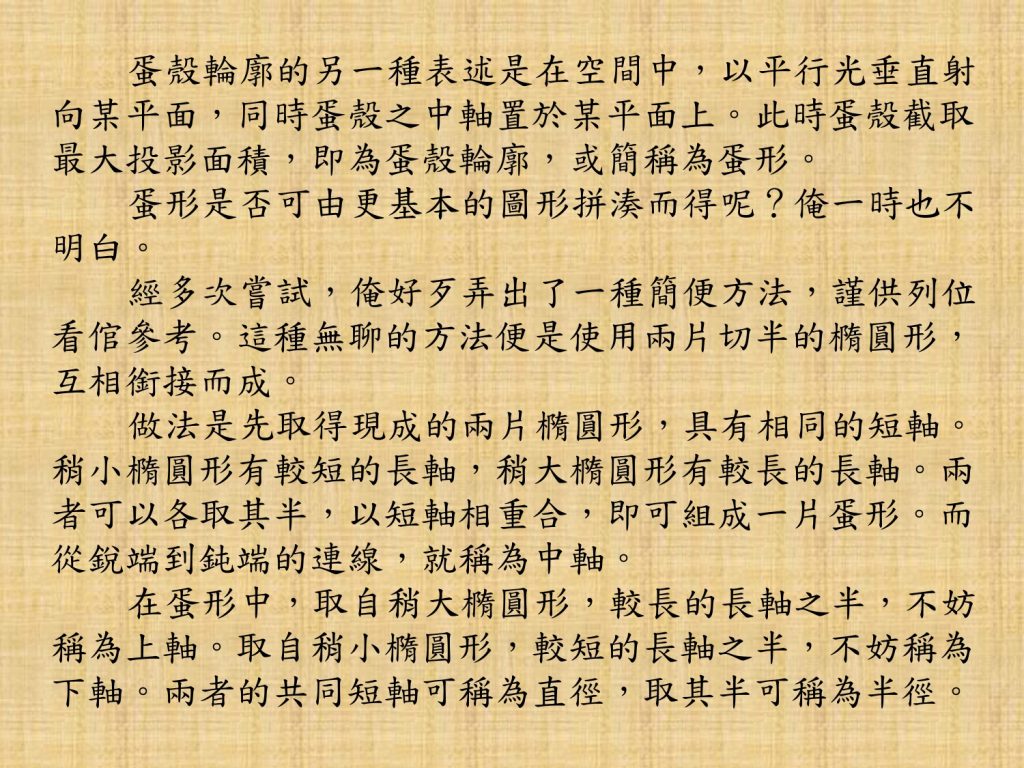 蛋殼輪廓的另一種表述是在空間中，以平行光垂直射
向某平面，同時蛋殼之中軸置於某平面上。此時蛋殼截取
最大投影面積，即為蛋殼輪廓，或簡稱為蛋形。
蛋形是否可由更基本的圖形拼湊而得呢？俺一時也不
明白。
經多次嘗試，俺好歹弄出了一種簡便方法，謹供列位
看倌參考。這種無聊的方法便是使用兩片切半的橢圓形，
互相銜接而成。
做法是先取得現成的兩片橢圓形，具有相同的短軸。
稍小橢圓形有較短的長軸，稍大橢圓形有較長的長軸。兩
者可以各取其半，以短軸相重合，即可組成一片蛋形。而
從銳端到鈍端的連線，就稱為中軸。
在蛋形中，取自稍大橢圓形，較長的長軸之半，不妨
稱為上軸。取自稍小橢圓形，較短的長軸之半，不妨稱為
下軸。兩者的共同短軸可稱為直徑，取其半可稱為半徑。